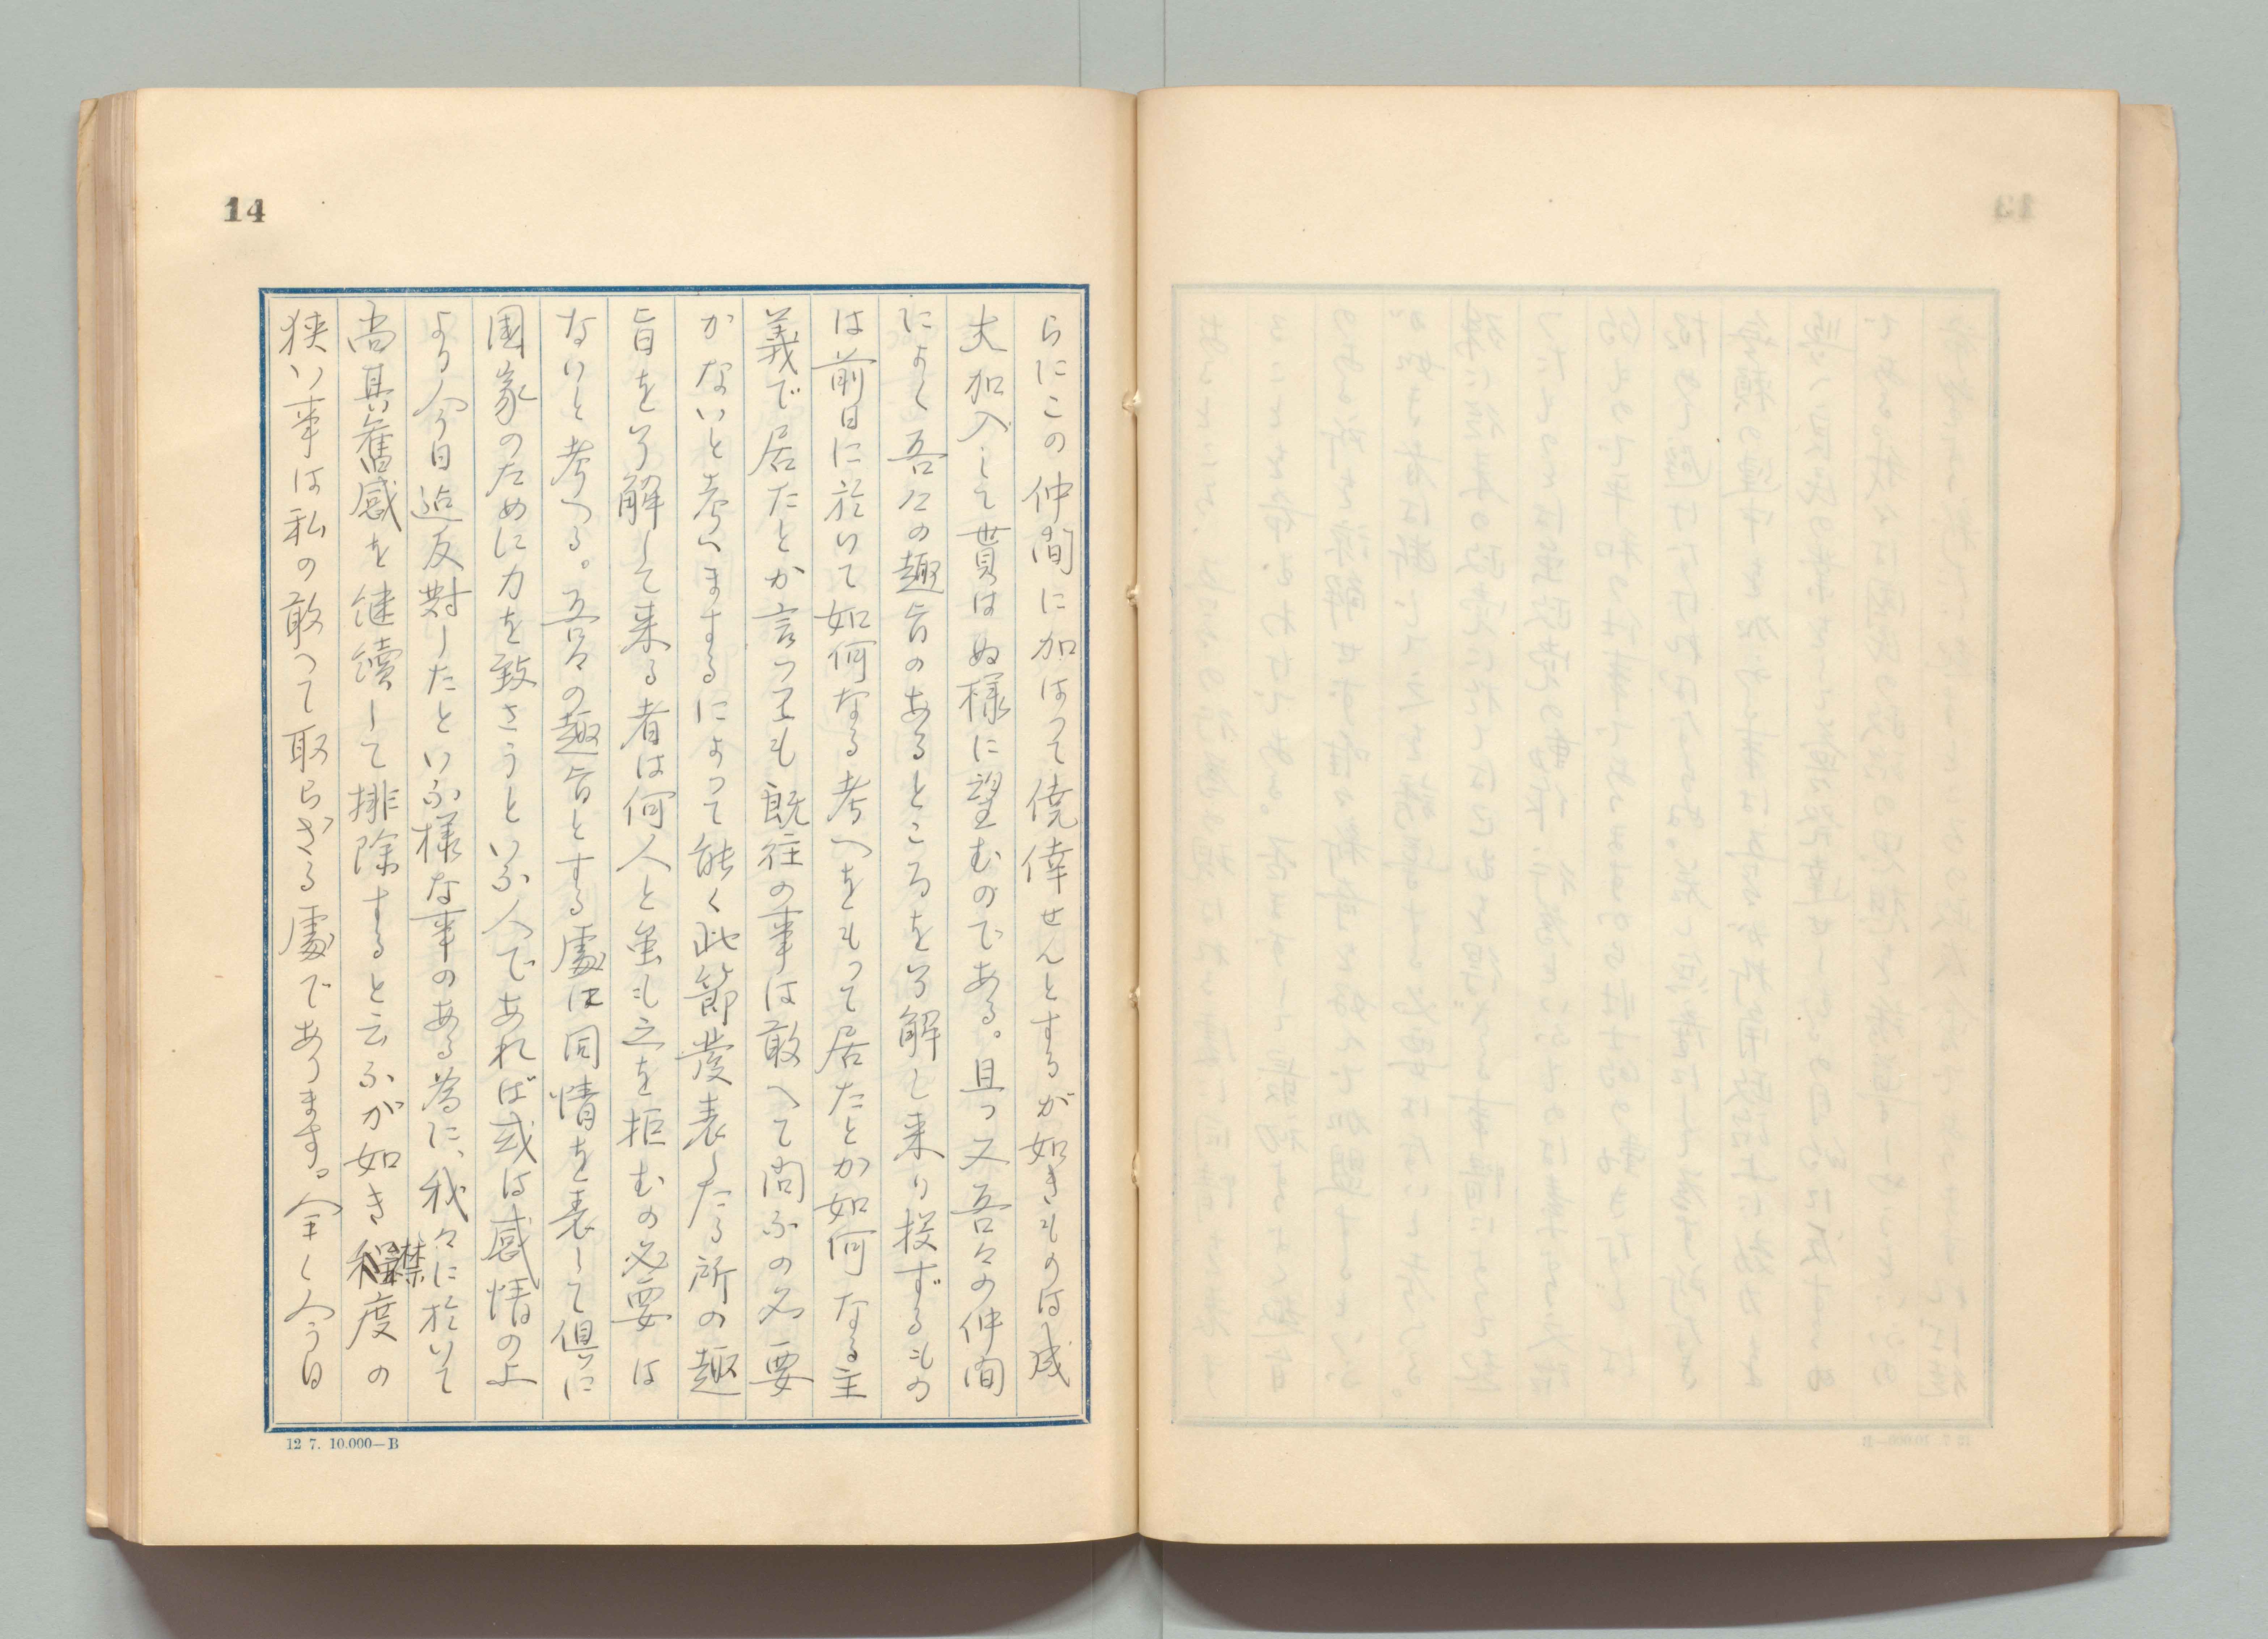 14
らにこの仲間に加はって僥倖せんとするが如きものは成
丈加入して貰はぬ様に望むのである。且つ又吾々の仲間
によく吾々の趣旨のあるところを了解し来り投ずるもの
は前日に於いて如何なる考へをもって居たとか如何なる主
義で居たとか言っても既往の事は敢へて問ふの必要
かないと考へまするによって能く此節發表したる所の趣
旨を了解して来る者は何人と虽も之を拒むの必要は
ないと考へる。吾々の趣旨とする處は同情を表して倶に
国家のために力を致さうといふ人であれば或は感情の上
より今日迠反對したといふ様な事のある為に、我々に於いて
尚其舊感を継續して排除すると云ふが如き襟度の
狭い事は私の敢へて取らざる處であります。全く今日
12 7. 10.000—B